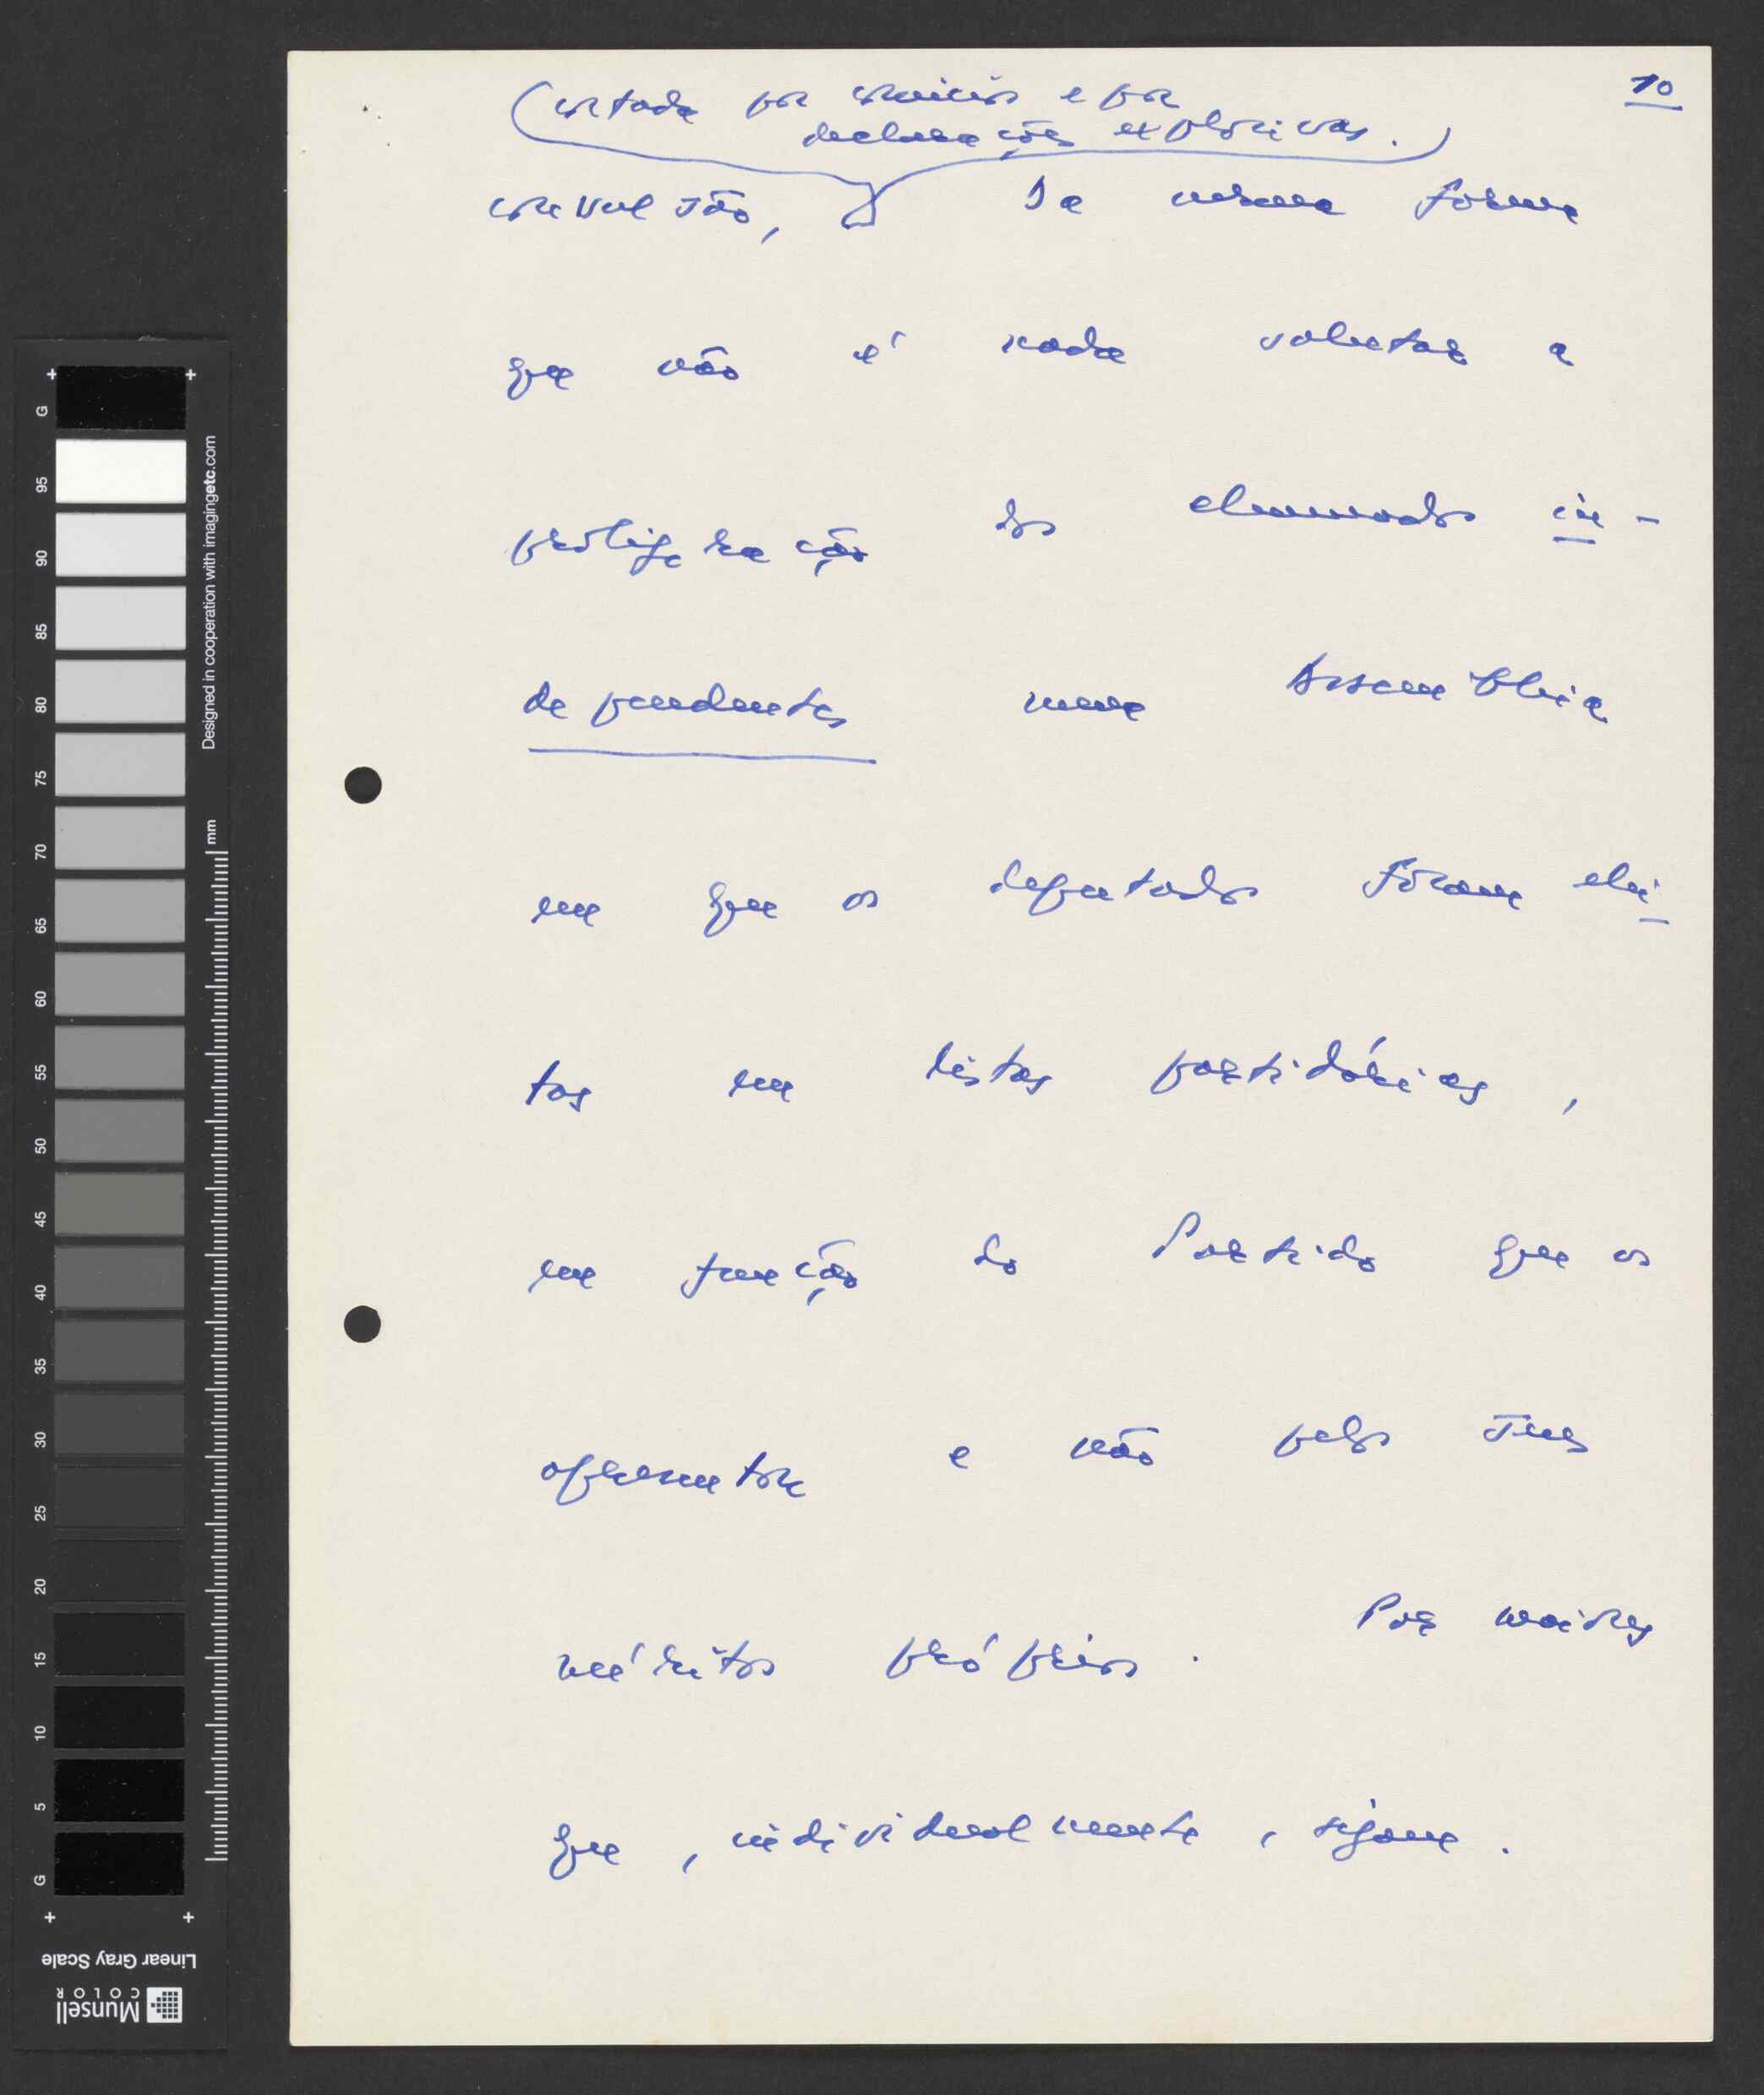 10
(cortada por comícios e por
declarações explosivas.)
convulsão, Da mesma forma
que não é nada salutar a
proliferação dos chamados in-
dependentes numa Assembleia
em que os deputados foram elei
tos em listas partidárias,
em função do Partido que os
apresentou e não pelos seus
méritos próprios. Por maiores
que, individualmente, sejam.
G 95 90 85 80 75 70 65 60 55 50 45 40 35 30 25 20 15 10 5 G
Designed in cooperation with imagingetc.com
mm
Linear Gray Scale
Munsell
COLOR